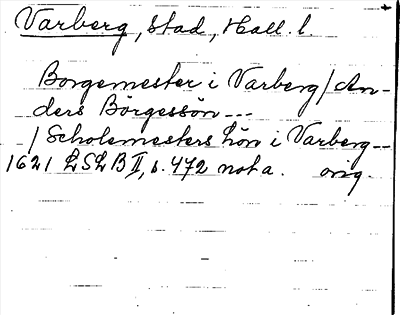 Varberg, Stad, Hall. l.
Borgemester i Varberg / An-
ders Börgessön ---
/ Scholemesters lön i Varberg --
1621 LSLB II, s. 472 not a. orig.